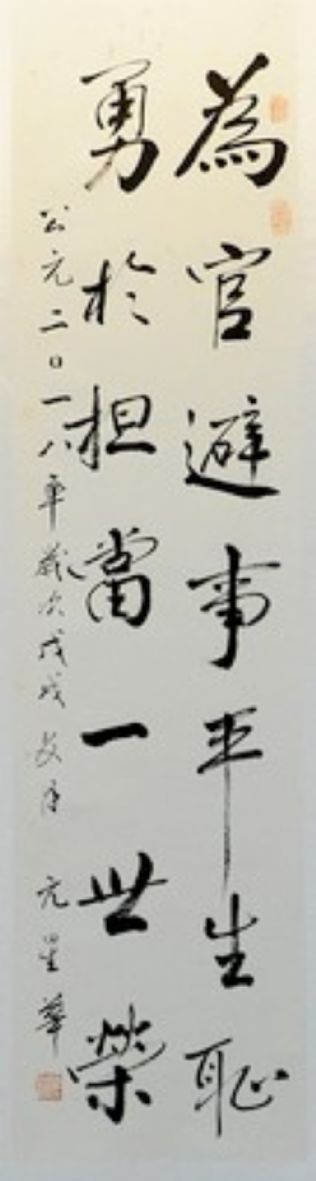 為官避事平生恥
勇於担當一世榮
公元二0一八年歲次戊戌 元星華